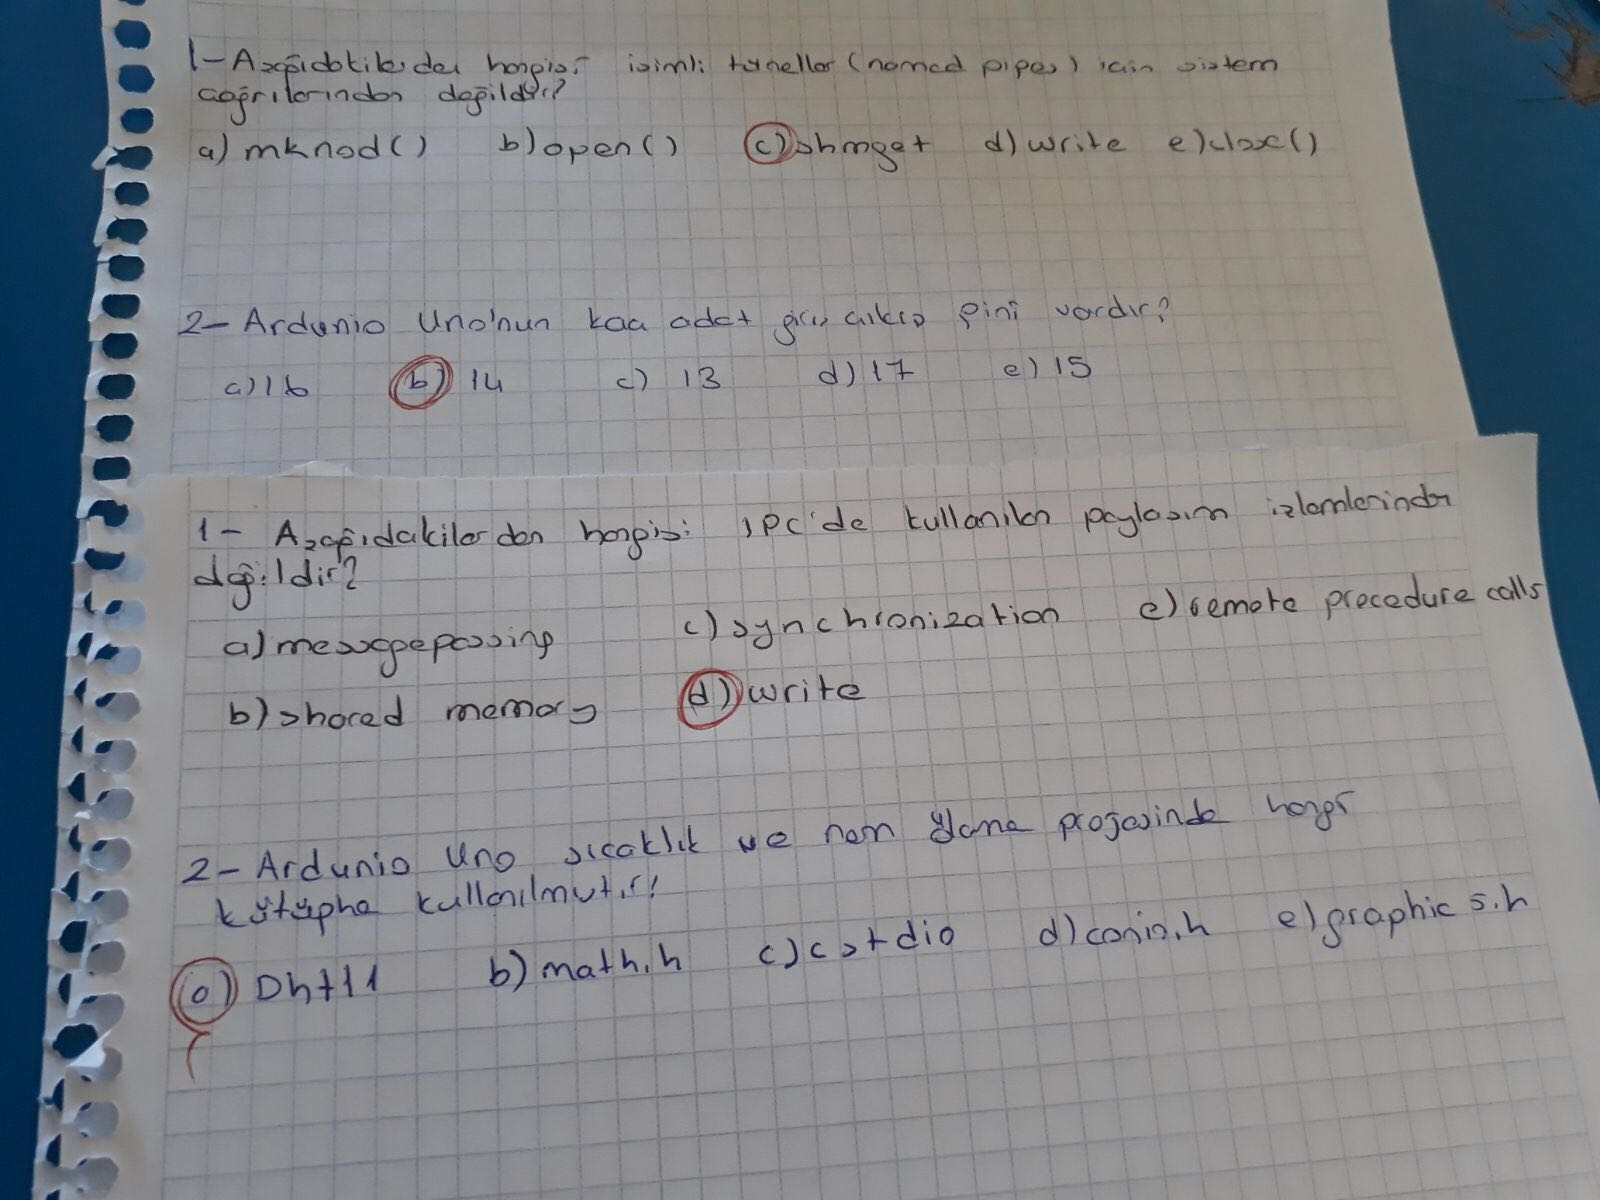 1- Aşağıdakilerden hangisi isimli tüneller (named pipes) için sistem
çağrılarından değildir?
a) mknod() b) open() c) shmget d) write e) close()
2- Ardunio Uno'nun kaç adet giriş çıkış pini vardır?
a) 16 b) 14 c) 13 d) 17 e) 15
1- Aşağıdakilerden hangisi IPC'de kullanılan paylaşım izlemlerinden
değildir?
a) messagepassing c) synchronization e) remote procedure calls
b) shared memory d) write
2- Ardunio Uno sıcaklık ve nem projesinde hangi
kütüphane kullanılmıştır?
a) Dht11 b) math.h c) cstdio d) conio.h e) graphics.h